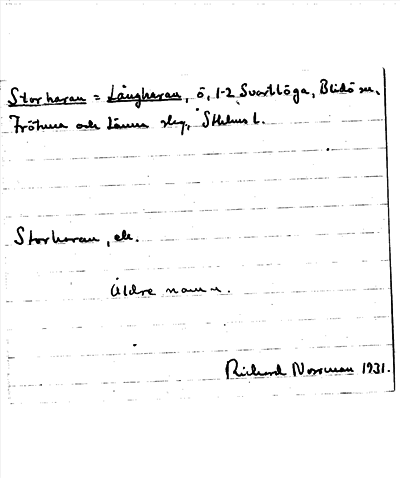 Storharan = Långharan, ö, 1-2 Svartlöga, Blidö sn,
Frötuna och Länna skg, Sthlms l.
Storharan, ek.
Äldre namn.
Richard Norrman 1931.